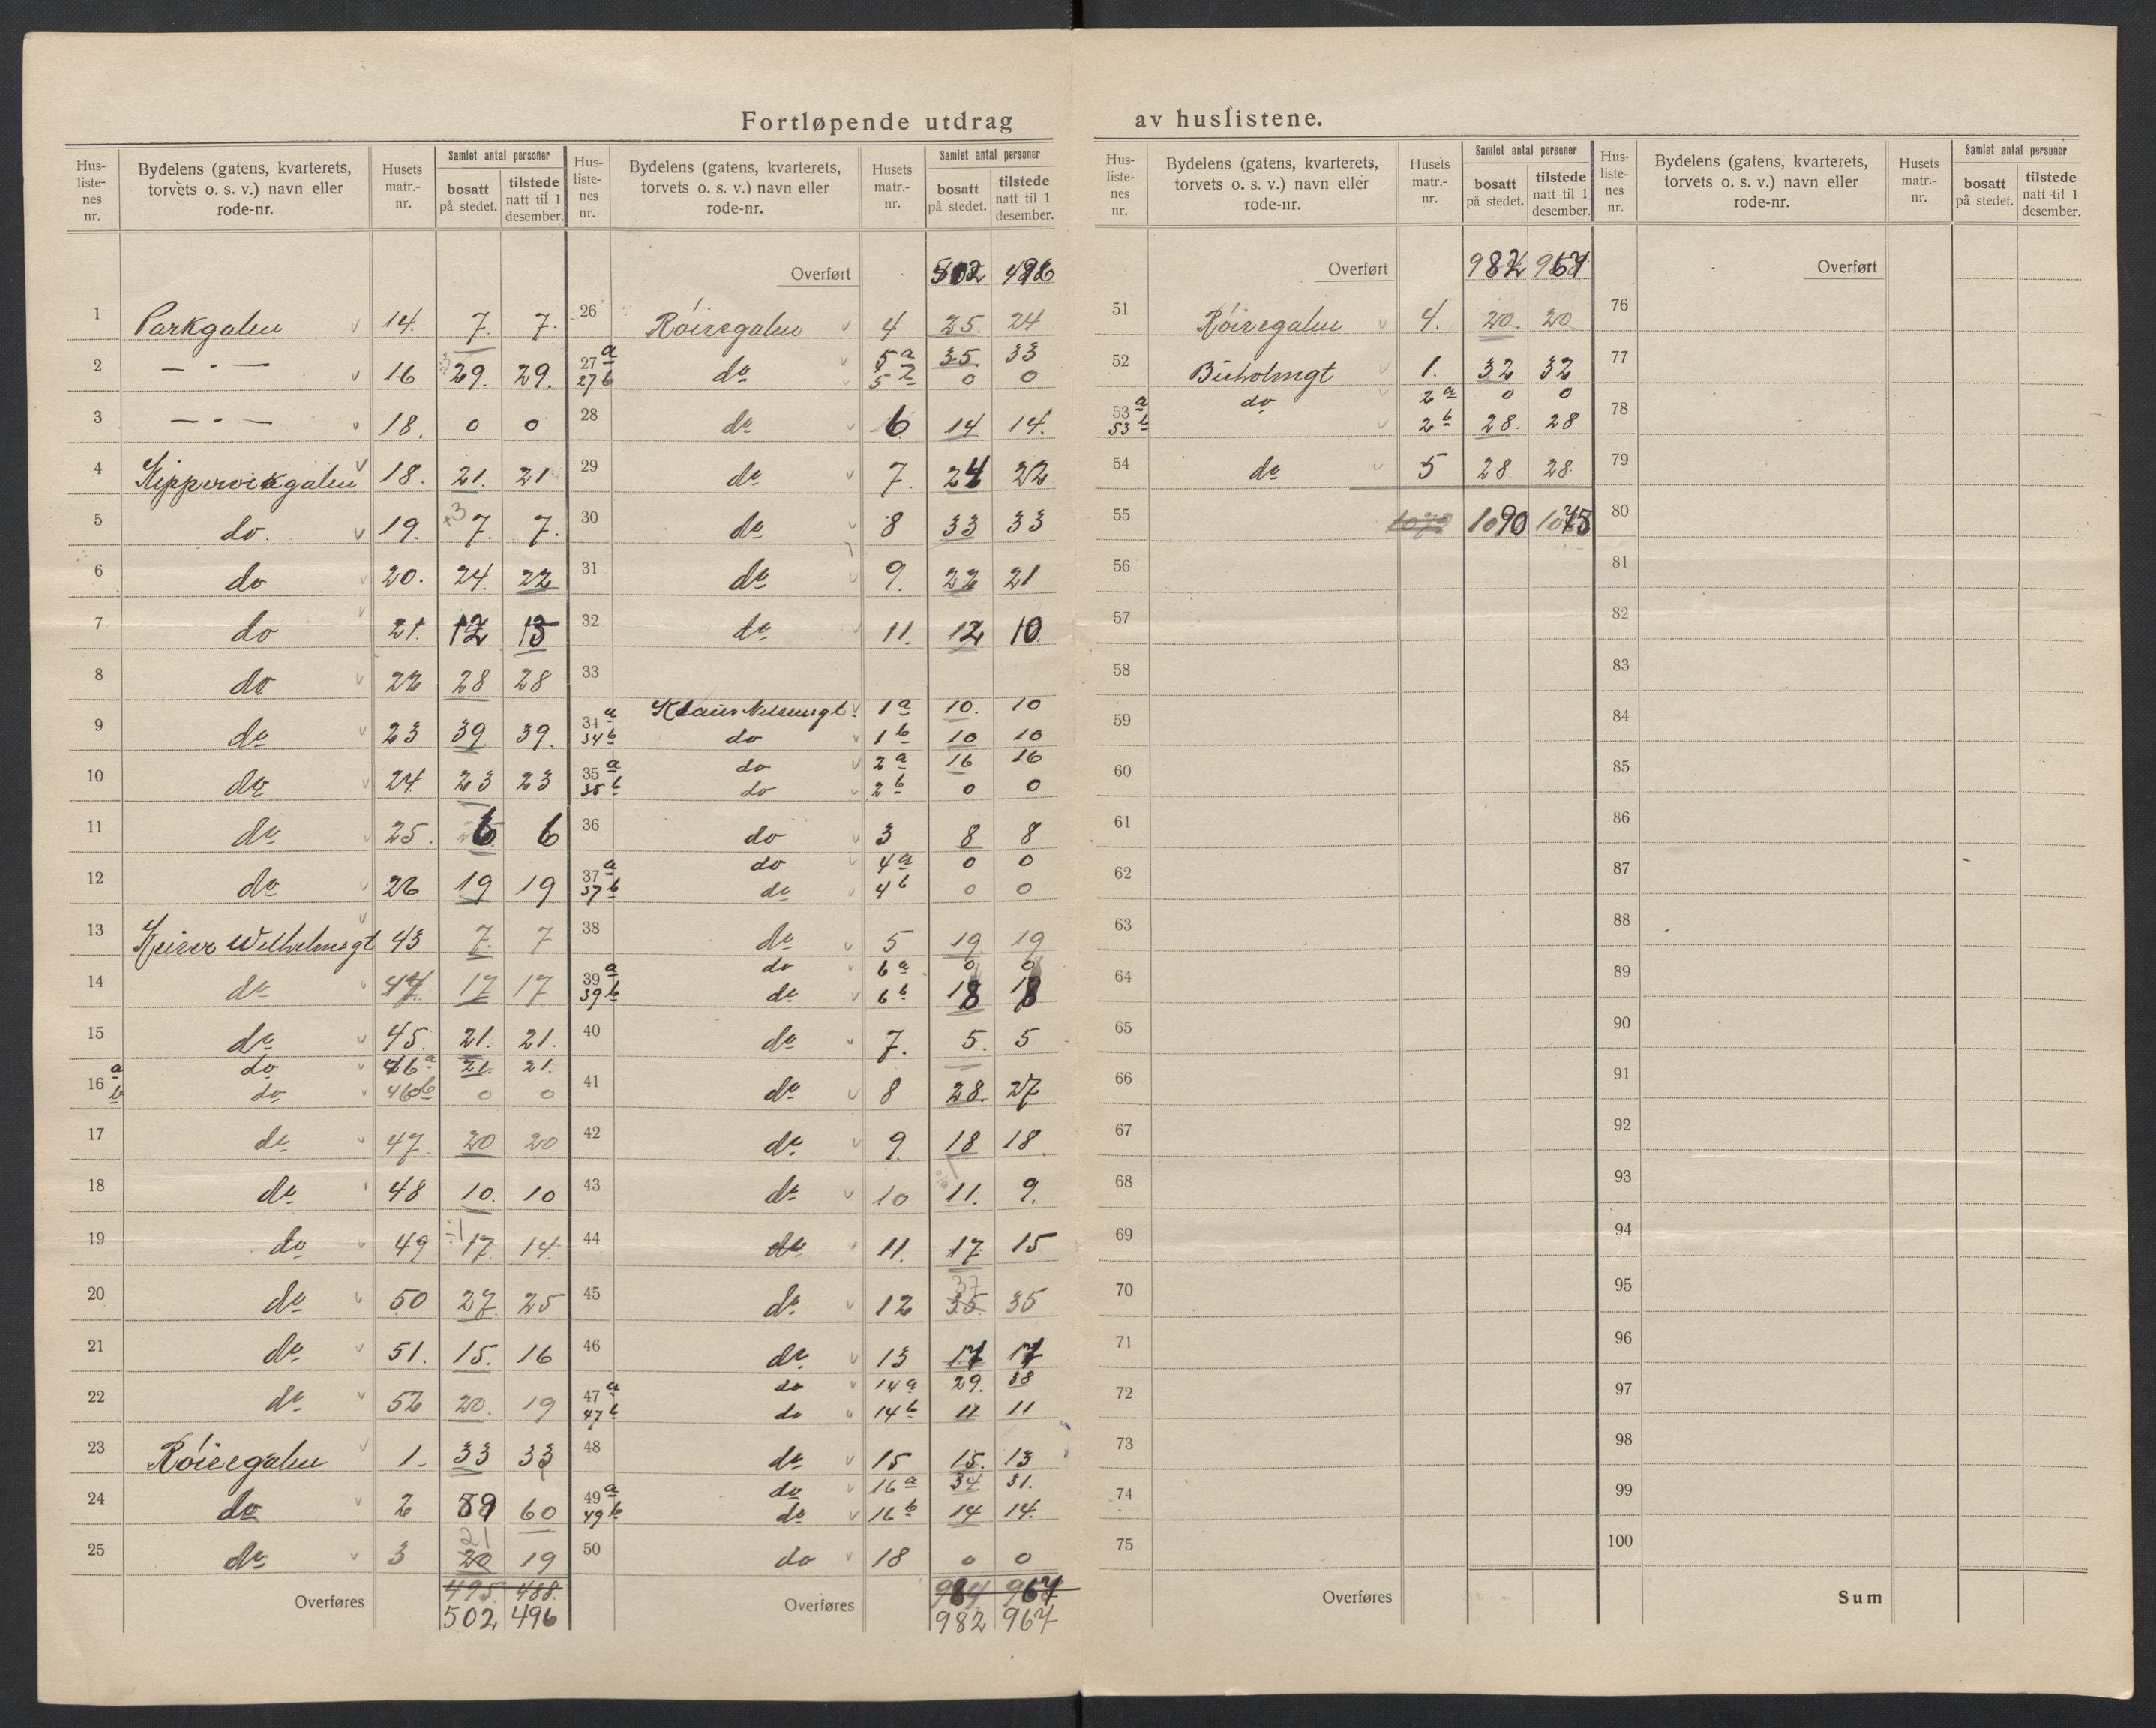 Fortløpende utdrag av huslistene.
Hus-listenes nr. | Bydelens (gatens, kvarterets, torvets o. s. v.) navn eller rode-nr. | Husets matr.-nr. | Samlet antal personer bosatt på stedet. | tilstede natt til 1 desember.
1 Parkgaten 14. 7. 7.
2 — - — 16 29. 29.
3 — - — 18. 0 0
4 Skippervikgaten 18. 21. 21
5 do. 19. 7. 7.
6 do 20. 24. 22
7 do 21. 12 13
8 do 22 28 28
9 do 23 39. 39.
10 do 24 23 23
11 do 25. 6 6
12 do 26 19 19.
13 Keiser Wilhelmsgt 43 7. 7
14 do 44. 17 17
15 do 45. 21. 21.
16 a do 46 a 21. 21.
b do 46 b 0 0
17 do 47. 20 20
18 do 48 10. 10
19 do 49 17. 14.
20 do 50 27. 25
21 do 51. 15. 16
22 do 52 20. 19
23 Röiregaten 1. 33 33
24 do 2 59 60
21
25 do 3 20 19
495. 488.
Overføres 502 496
Hus-listenes nr. | Bydelens (gatens, kvarterets, torvets o. s. v.) navn eller rode-nr. | Husets matr.-nr. | Samlet antal personer bosatt på stedet. | tilstede natt til 1 desember.
Overført 502 496
26 Röiregaten 4 25. 24
27 a do 5 a 35 33
27 b 5 0 0
28 do 6 14 14.
29 do 7. 24 22
30 do 8 33 33
31 do 9. 22 21
32 do 11. 12 10.
33
34 a Klaus Nilsensgt. 1 a 10. 10
34 b do 1 b 10 10
35 a do 2 a 16 16
35 b do 2 b 0 0
36 do 3 8 8
37 a do 4 a 0 0
37 b do 4 b 0 0
38 do 5 19. 19
39 a do 6 a 0 0
39 b do 6 b 18 18
40 do 7. 5. 5
41 do 8 28. 27
42 do 9. 18 18.
43 do 10 11. 9.
44 do 11. 17 15
37
45 do 12 35. 35
46 do 13 17 17
47 a do 14 a 29. 38
47 b do 14 b 11 11
48 do 15 15. 13
49 a do 16 a 34. 31.
49 b do 16 b 14 14.
50 do 18 0 0
984 967
Overføres 982 967
Hus-listenes nr. | Bydelens (gatens, kvarterets, torvets o. s. v.) navn eller rode-nr. | Husets matr.-nr. | Samlet antal personer bosatt på stedet. | tilstede natt til 1 desember.
Overført 982 967
51 Röiregaten 4. 20. 20
52 Buholmgt 1. 32 32
53 a do 2 a 0 0
53 b 2 b 28. 28
54 do 5 28 28
55 1090 1075
56
57
58
59
60
61
62
63
64
65
66
67
68
69
70
71
72
73
74
75
Overføres
Hus-listenes nr. | Bydelens (gatens, kvarterets, torvets o. s. v.) navn eller rode-nr. | Husets matr.-nr. | Samlet antal personer bosatt på stedet. | tilstede natt til 1 desember.
Overført
76
77
78
79
80
81
82
83
84
85
86
87
88
89
90
91
92
93
94
95
96
97
98
99
100
Sum